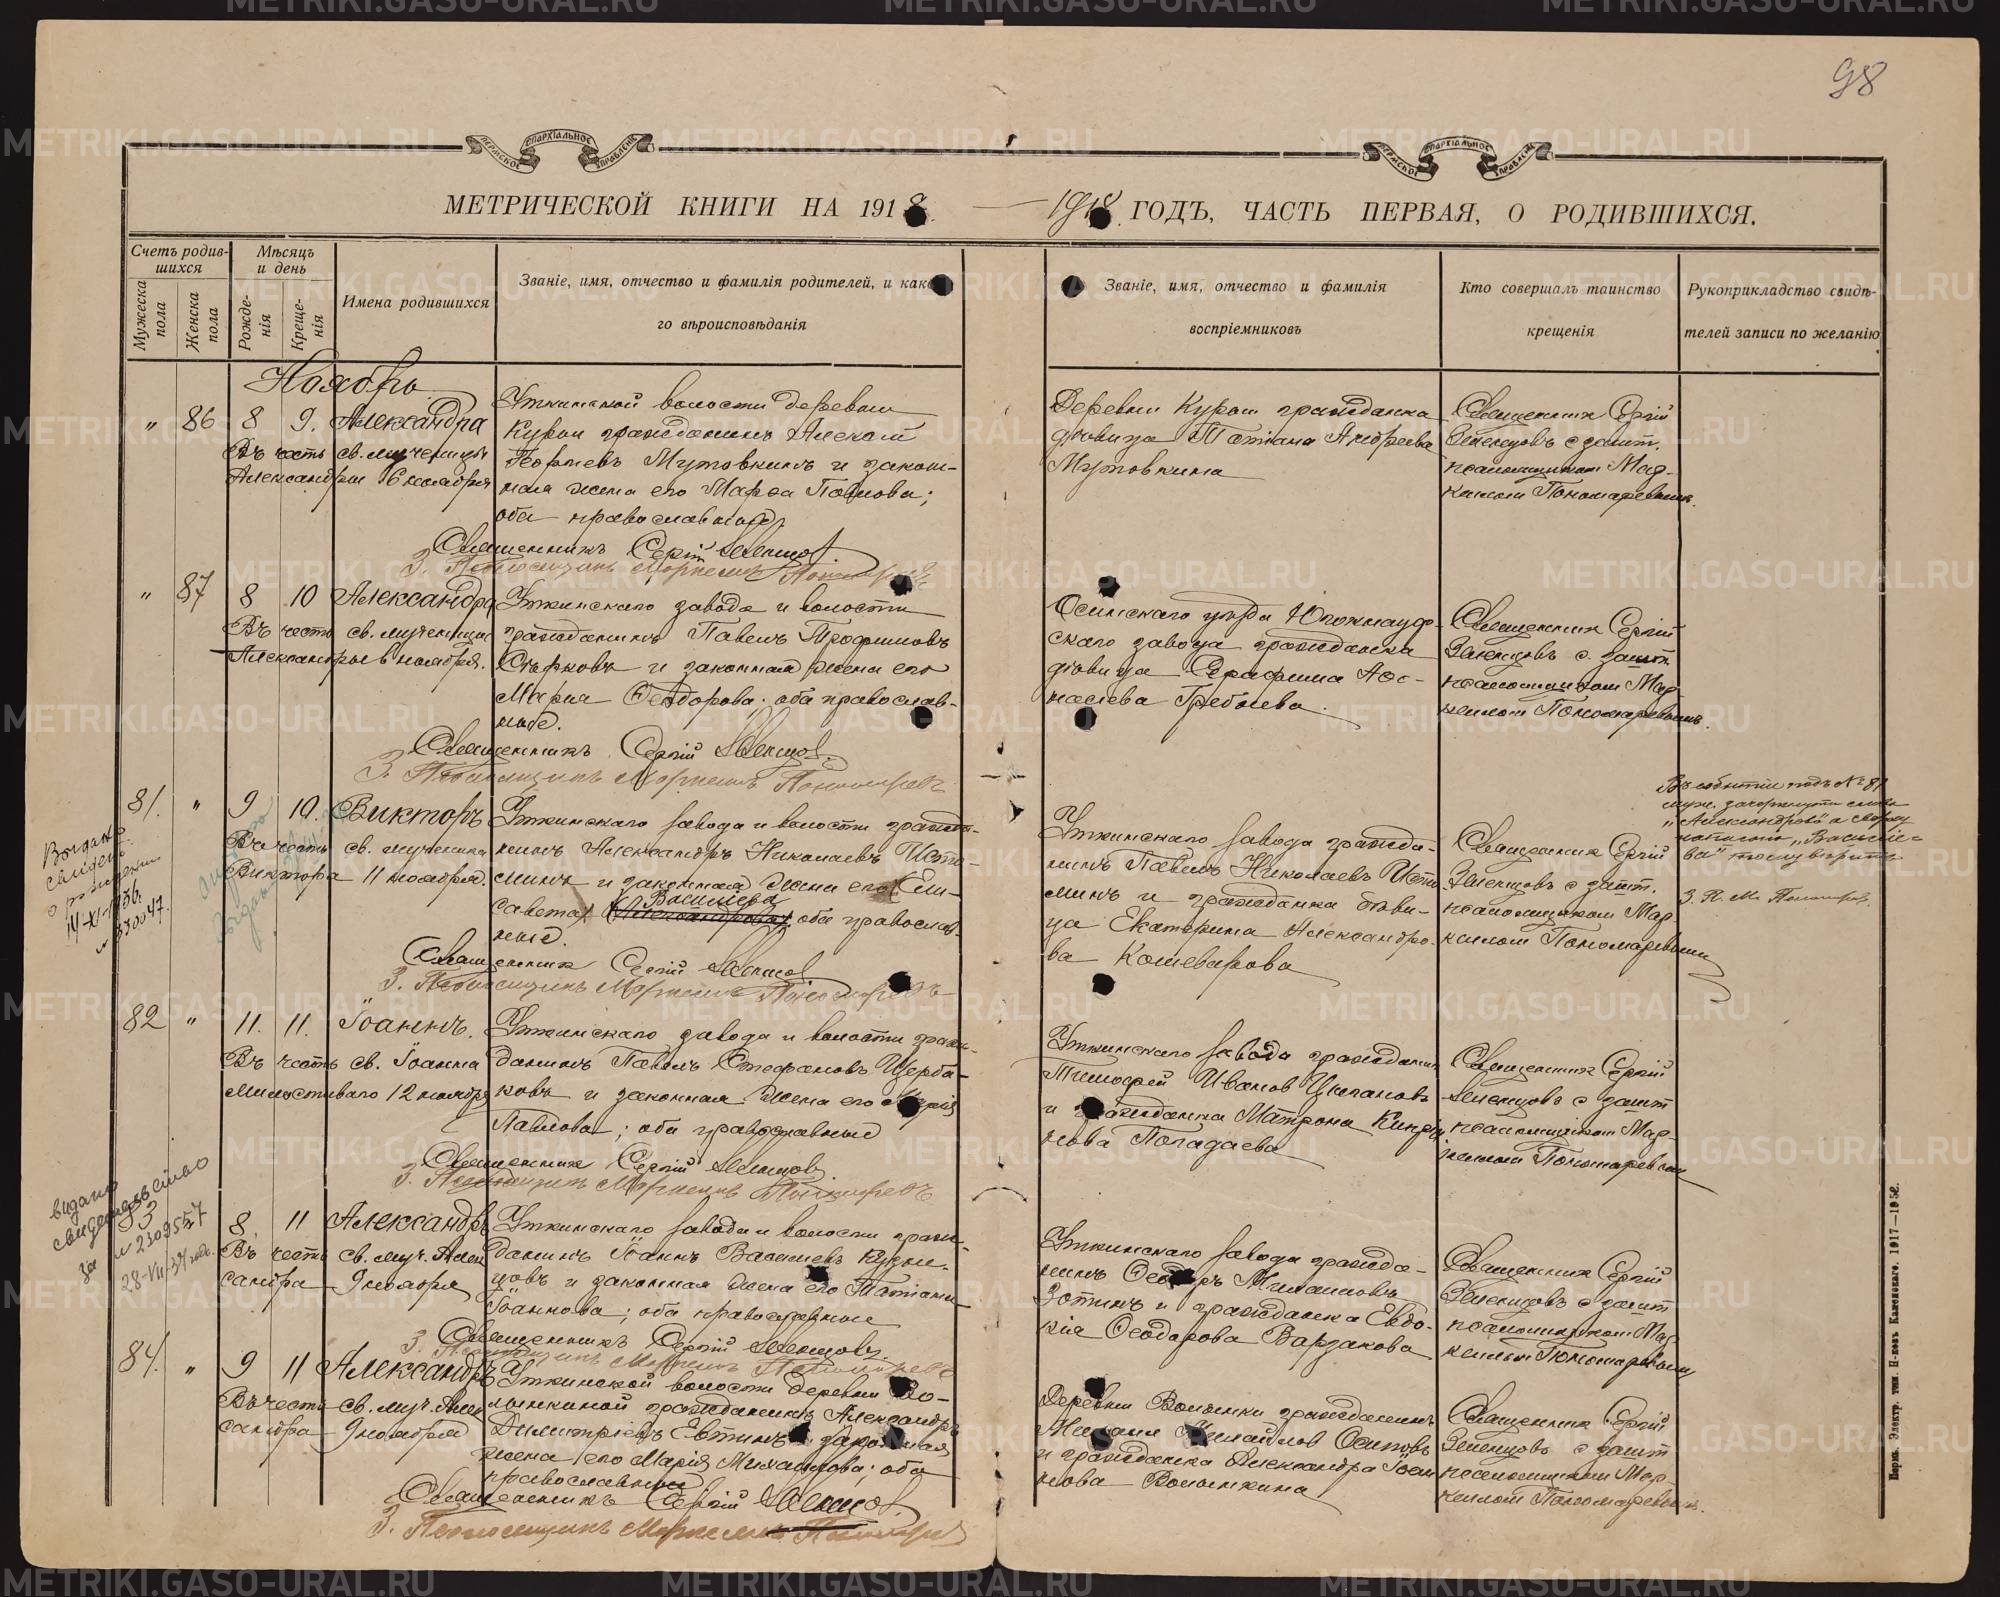 98
ПЕРМСКОЕ ЕПАРХІАЛЬНОЕ УПРАВЛЕНІЕ
ПЕРМСКОЕ ЕПАРХІАЛЬНОЕ УПРАВЛЕНІЕ
МЕТРИЧЕСКОЙ КНИГИ НА 1918. — 1918 ГОДЪ, ЧАСТЬ ПЕРВАЯ, О РОДИВШИХСЯ.
Счетъ родив-
шихся
Мужеска пола
Женска пола
Мѣсяцъ и день
Рожде-
нія
Креще-
нія
Имена родившихся
Званіе, имя, отчество и фамилія родителей, и како
го вѣроисповѣданія
Званіе, имя, отчество и фамилія
воспріемниковъ
Кто совершалъ таинство
крещенія
Рукоприкладство свидѣ-
телей записи по желанію
Ноябрь
" 86 8 9. Александра
Въ честь св. мученицы
Александры 6 ноября
Уткинской волости деревни
Курьи гражданинъ Алексій
Георгіевъ Мутовкинъ и закон-
ная жена его Марѳа
оба православные
Священникъ Сергій
З. Псаломщикъ Маркеллъ Пономаревъ
Деревни Курьи гражданка
дѣвица Татіана Андреева
Мутовкина
Священникъ Сергій
съ зашт.
псаломщикомъ Мар-
келломъ Пономаревымъ
" 87 8 10 Александра
Въ честь св. мученицы
Александры 6 ноября.
Уткинскаго завода и волости
гражданинъ Павелъ Трофимовъ
и законная жена его
Марія Ѳеодорова; оба православ-
ные.
Священникъ Сергій
З. Псаломщикъ Маркеллъ Пономаревъ
Осинскаго уѣзда Югокнауф-
скаго завода гражданка
дѣвица Серафима
Гребнева
Священникъ Сергій
съ зашт.
псаломщикомъ Мар-
келломъ Пономаревымъ.
81. " 9 10. Викторъ
Въ честь св. мученика
Виктора 11 ноября.
Выдано
свидет.
о рождении
14-XI-1956.
№ 330047.
Уткинскаго завода и волости гражда-
нинъ Александръ Николаевъ Исто-
минъ и законная жена его Ели-
савета Васильева (Александрова) оба православ-
ные.
Священникъ Сергій
З. Псаломщикъ Маркеллъ Пономаревъ
Уткинскаго завода гражда-
нинъ Павелъ Николаевъ Исто-
минъ и гражданка дѣви-
ца Екатерина Александро-
ва Кошеварова
Священникъ Сергій
съ зашт.
псаломщикомъ Мар-
келломъ Пономаревымъ
Въ событіи подъ № 81
муж. зачеркнуто слово
"Александрова" а сверху
написано "Василье-
ва" тому вѣрить
З. П. М. Пономарев.
82 " 11. 11. Іоаннъ.
Въ честь св. Іоанна
Милостиваго 12 ноября
Уткинскаго завода и волости граж-
данинъ Павелъ Стефановъ Щерба-
ковъ и законная жена его Марія
Павлова; оба православные
Священникъ Сергій
З. Псаломщикъ Маркеллъ Пономаревъ
Уткинскаго завода гражданин
Тимофей Иванов Цыпановъ
и гражданка Матрона
Погадаева
Священникъ Сергій
съ зашт
псаломщикомъ Мар-
келломъ Пономаревым
выдано
свидетельство
за № 2309557
28-VII-37 года.
83 8 11 Александръ
Въ честь св. муч. Алек
сандра 9 ноября
Уткинскаго завода и волости граж-
данинъ Іоаннъ Васильевъ Кузне-
цовъ и законная жена его Татіана
Іоаннова; оба православные
Священникъ Сергій
З. Псаломщикъ Маркеллъ Пономаревъ
Уткинскаго завода гражда-
нинъ Ѳеодоръ Михаиловъ
Зотинъ и гражданка Евдо-
кія Ѳеодорова Варзакова
Священникъ Сергій
съ зашт
псаломщикомъ Мар
келломъ Пономаревым
84. " 9 11 Александръ
Въ честь св. муч. Алек
сандра 9 ноября
Уткинской волости деревни Во-
лынкиной гражданинъ Александръ
Димитріевъ Евтинъ законная
жена его Марія Михаилова; оба
православные
Священникъ Сергій
З. Псаломщикъ Маркеллъ Пономаревъ
Деревни Волынки гражданинъ
Михаил Михайлов Осиповъ
и гражданка Александра Іоан
нова Волынкина
Священникъ Сергій
съ зашт
псаломщикомъ Мар-
келломъ Пономаревым.
Пермь. Электр. тип. Н-ковъ Каменскаго. 1917—1958.
METRIKI.GASO-URAL.RU